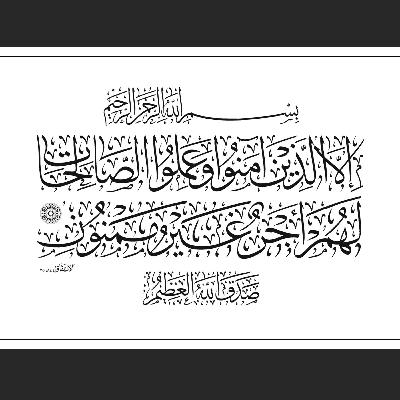 بِسْمِ اللَّهِ الرَّحْمَنِ الرَّحِيمِ
إِلَّا الَّذِينَ آمَنُوا وَعَمِلُوا الصَّالِحَاتِ
لَهُمْ أَجْرٌ غَيْرُ مَمْنُونٍ
صَدَقَ اللَّهُ الْعَظِيمُ